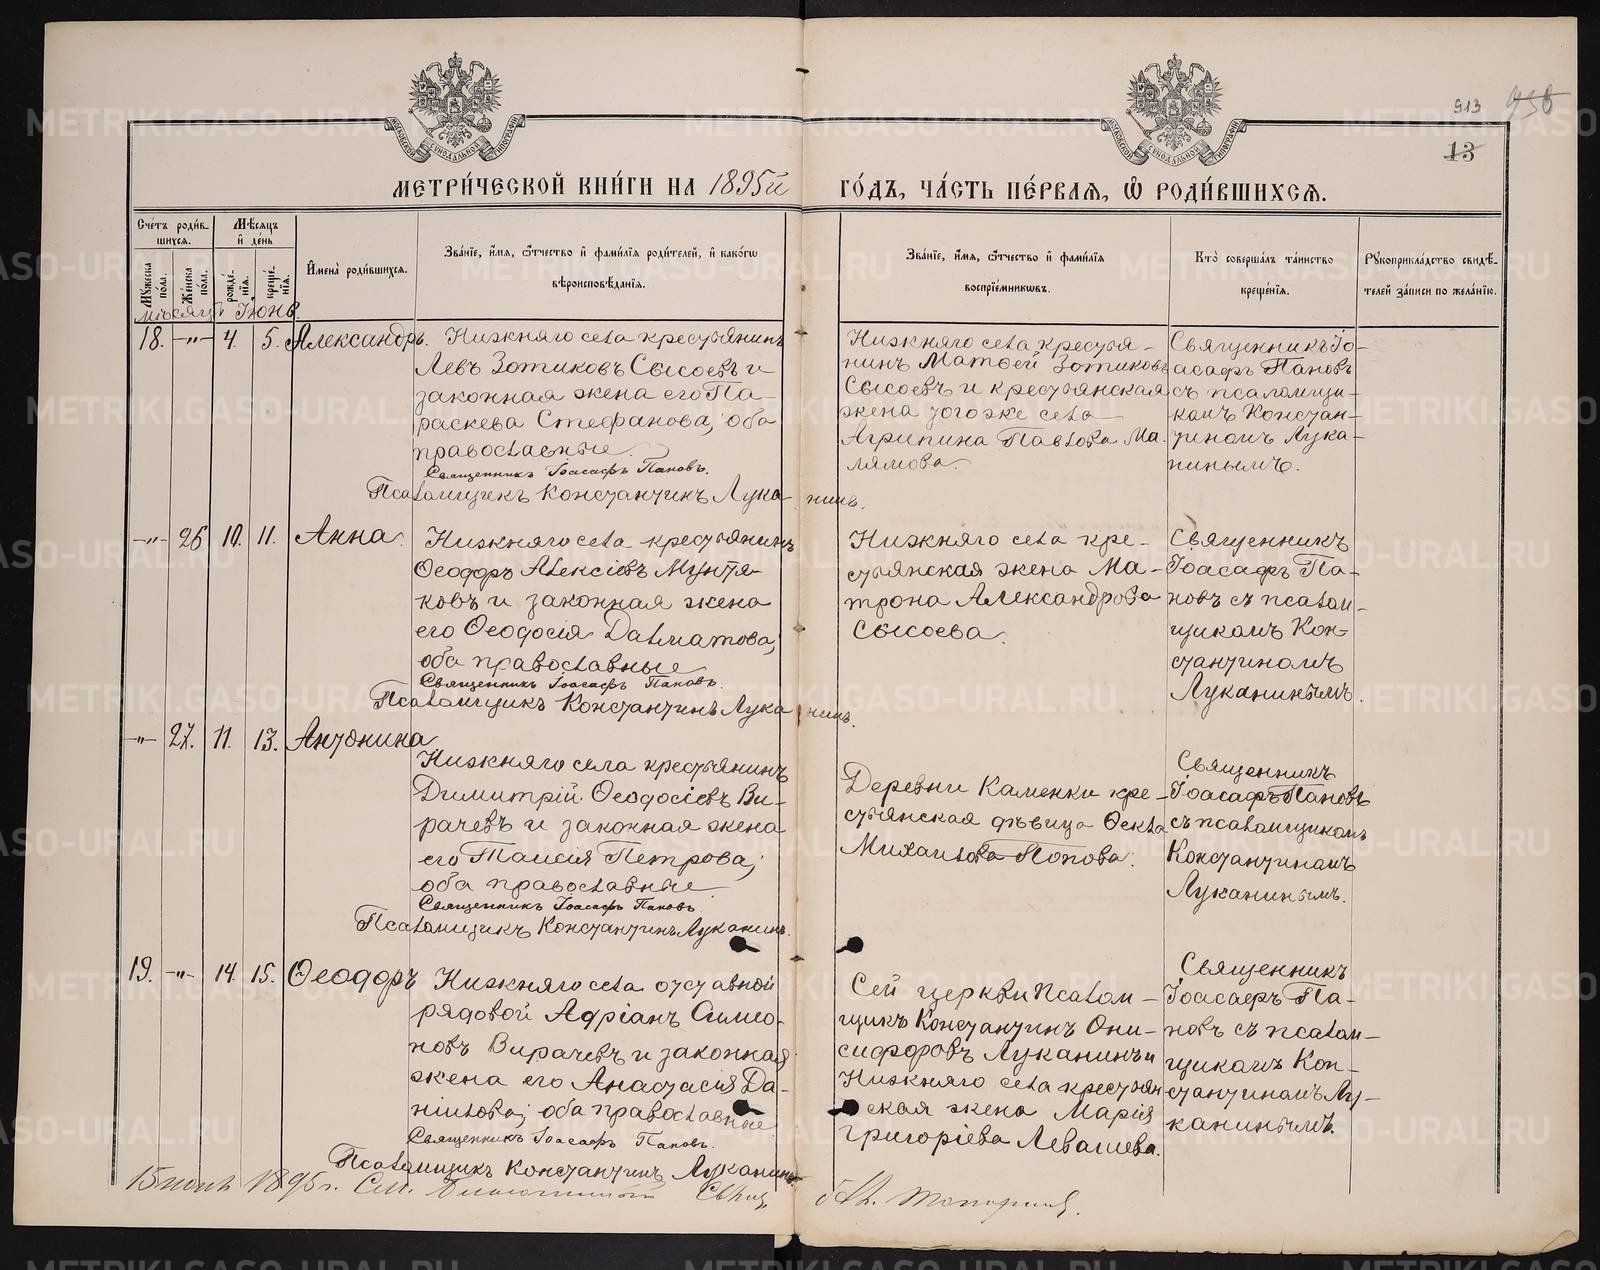 913
13
МЕТРИ́ЧЕСКОЙ КНИ́ГИ НА 1895й ГО́ДЪ, ЧА́СТЬ ПЕ́РВАЯ, Ѿ РОДИ́ВШИХСЯ.
Сче́тъ роди́вшихся.
Мужеска по́ла.
Же́нска по́ла.
Мѣ́сяцъ и҆ де́нь
рожде́нїя.
креще́нїя.
И҆мена̀ роди́вшихся.
Зва́нїе, и҆́мя, ѻ҆́тчество и҆ фами́лїя роди́телей, и҆ како́гѡ вѣроисповѣ́данїя.
Зва́нїе, и҆́мя, ѻ҆́тчество и҆ фами́лїя воспрїе́мниковъ.
Кто̀ соверша́лъ та́инство креще́нїя.
Рукоприкла́дство свидѣ́телей за́писи по жела́нїю.
мѣсяцъ Іюнь.
18. —"— 4. 5. Александръ.
Нижняго села крестьянинъ
Левъ Зотиковъ Сысоевъ и
законная жена его Па-
раскева Стефанова; оба
православные.
Священникъ Іоасафъ Пановъ.
Псаломщикъ Константинъ Луканинъ.
Нижняго села крестья-
нинъ Матѳей Зотиковъ
Сысоевъ и крестьянская
жена того же села
Агрипина Павлова Ма-
лямова.
Священникъ Іо-
асафъ Пановъ
съ псаломщи-
комъ Констан-
тиномъ Лука-
нинымъ.
—"— 26 10. 11. Анна.
Нижняго села крестьянинъ
Ѳеодоръ Алексіевъ Мунтя-
ковъ и законная жена
его Ѳеодосія Далматова;
оба православные
Священникъ Іоасафъ Пановъ.
Псаломщикъ Константинъ Луканинъ.
Нижняго села кре-
стьянская жена Ма-
трона Александрова
Сысоева.
Священникъ
Іоасафъ Па-
новъ съ псалом-
щикомъ Кон-
стантиномъ
Луканинымъ.
—"— 27. 11. 13. Антонина
Нижняго села крестьянинъ
Димитрій Ѳеодосіевъ Ви-
рачевъ и законная жена
его Таисія Петрова;
оба православные
Священникъ Іоасафъ Пановъ.
Псаломщикъ Константинъ Луканинъ.
Деревни Каменки кре-
стьянская дѣвица Ѳекла
Михайлова Попова.
Священникъ
Іоасафъ Пановъ
съ псаломщикомъ
Константиномъ
Луканинымъ.
19. —"— 14. 15. Ѳеодоръ
Нижняго села отставной
рядовой Адріанъ Симео-
новъ Вирачевъ и законная
жена его Анастасія Да-
ніилова; оба православные
Священникъ Іоасафъ Пановъ.
Псаломщикъ Константинъ Луканинъ
Сей церкви Псалом-
щикъ Константинъ Они-
сифоровъ Луканинъ и
Нижняго села крестьян-
ская жена Марія
Григоріева Левашева.
Священникъ
Іоасафъ Па-
новъ съ псалом-
щикомъ Кон-
стантиномъ Лу-
канинымъ.
15 1895 г.
METRIKI.GASO-URAL.RU